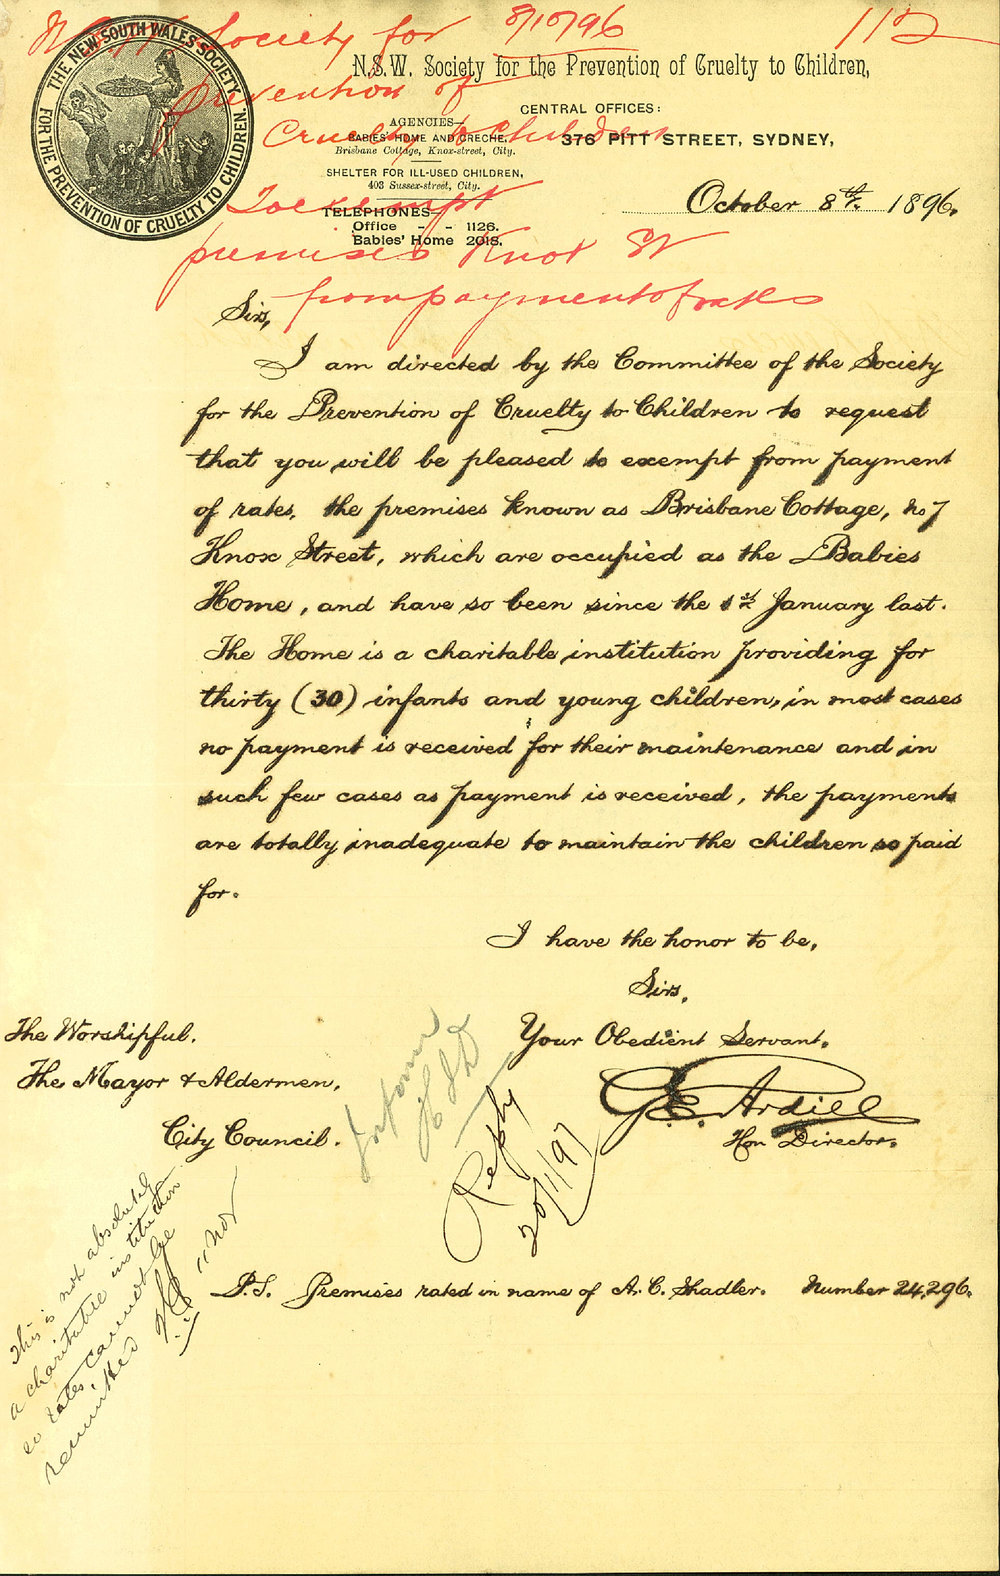 N.S.W. Society for 8/10/96 112
Prevention of
Cruelty to Children
To exempt
premises Knox St
from payment of rates
THE NEW SOUTH WALES SOCIETY
FOR THE PREVENTION OF CRUELTY TO CHILDREN.
N.S.W. Society for the Prevention of Cruelty to Children,
CENTRAL OFFICES:
376 PITT STREET, SYDNEY,
AGENCIES—
BABIES' HOME AND CRECHE,
Brisbane Cottage, Knox-street, City.
SHELTER FOR ILL-USED CHILDREN,
403 Sussex-street, City.
TELEPHONES—
Office - - 1126.
Babies' Home 2018.
October 8th. 1896.
Sirs,
I am directed by the Committee of the Society
for the Prevention of Cruelty to Children to request
that you will be pleased to exempt from payment
of rates, the premises known as Brisbane Cottage, No 7
Knox Street, which are occupied as the Babies
Home, and have so been since the 1st January last.
The Home is a charitable institution providing for
thirty (30) infants and young children, in most cases
no payment is received for their maintenance and in
such few cases as payment is received, the payments
are totally inadequate to maintain the children so paid
for.
I have the honor to be,
Sirs,
Your Obedient Servant,
G.E. Ardill
Hon Director.
The Worshipful.
The Mayor & Aldermen,
City Council.
Reply
20/1/97
This is not absolutely
a charitable institution
so rates cannot be
remitted
11 Nov
P.S. Premises rated in name of A. C. Shadler. Number 24,296.